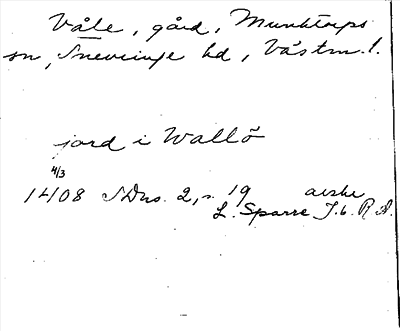 Våle, gård, Munktorps
sn, Snevringe hd, Västm. l.
jord i Wallö
4/3
1408 SDns. 2, s. 19 avskr
L. Sparre J.b. R.A.